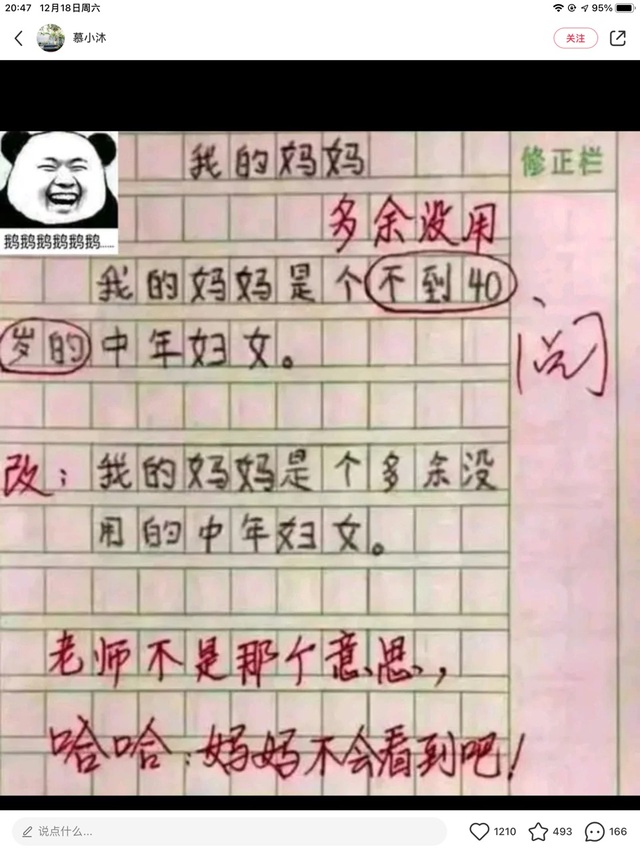 20:47 12月18日周六
95%
慕小沐
关注
我的妈妈
修正栏
鹅鹅鹅鹅鹅鹅......
多余没用
我的妈妈是个不到40
岁的中年妇女。
阅
改：我的妈妈是个多余没
用的中年妇女。
老师不是那个意思，
哈哈：妈妈不会看到吧！
说点什么...
1210
493
166